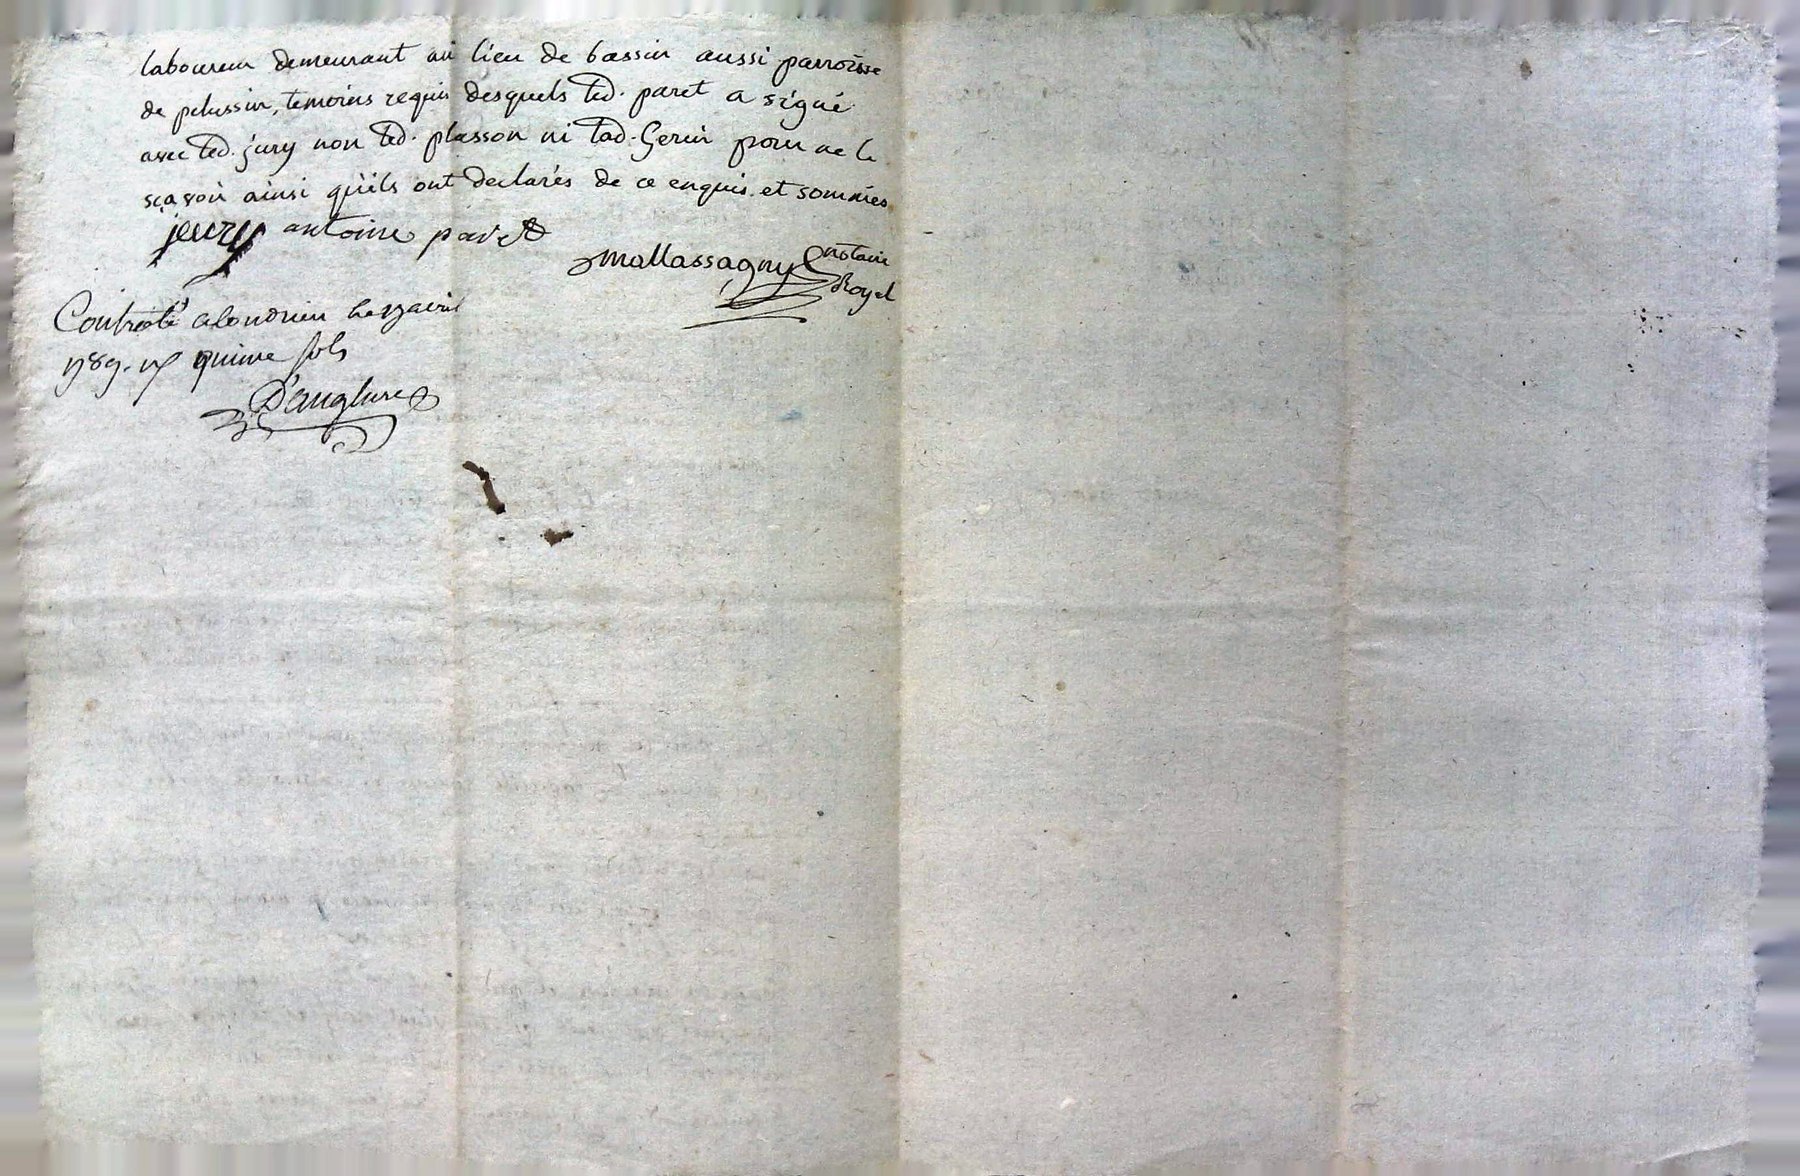 laboureur demeurant au lieu de bassin aussi parroisse
de pelussin, temoins requis desquels led. paret a signé
avec led. jury non led. plasson ni lad. Gerin pour ne le
sçavoir ainsi qu'ils ont declarés de ce enquis et sommés
jeury antoine paret
Mallassagny notaire
Royal
Controlé a Condrieu le avril
1789. quinze sols
D'anglure